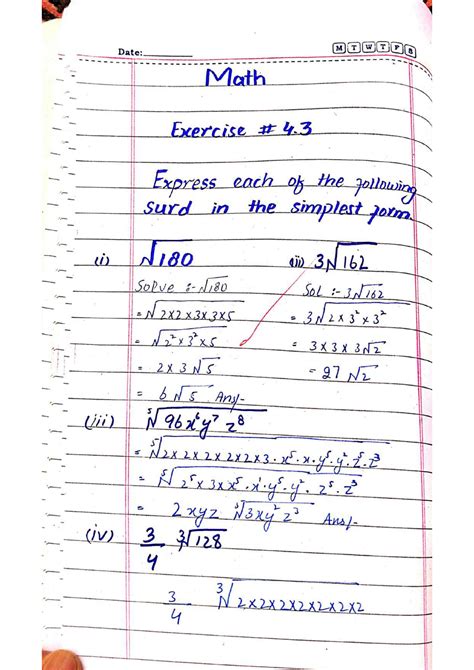 Date:
M T W T F S
Math
Exercise # 4.3
Express each of the following
surd in the simplest form.
(i) √180 (ii) 3√162
Solve :- √180 Sol :- 3√162
= √2×2×3×3×5 = 3√2×3²×3²
= √2²×3²×5 = 3×3×3√2
= 2×3√5 = 27√2
= 6√5 Ans/-
(iii) ⁵√96x⁶y⁷z⁸
= ⁵√2×2×2×2×2×3·x⁵·x·y⁵·y²·z⁵·z³
= ⁵√2⁵×3×x⁵·x¹·y⁵·y²·z⁵·z³
= 2xyz ⁵√3xy²z³ Ans/-
(iv) 3/4 ³√128
3/4 ³√2×2×2×2×2×2×2